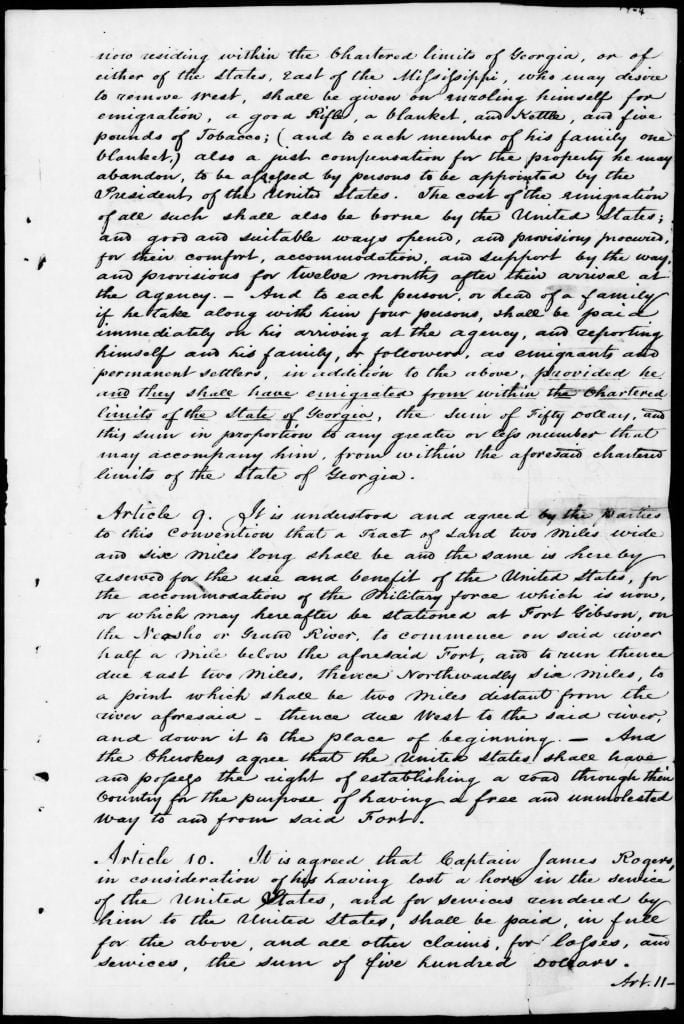 now residing within the Chartered limits of Georgia, or of
either of the States, East of the Mississippi, who may desire
to remove West, shall be given on enroling himself for
emigration, a good Rifle, a blanket, and Kettle, and five
pounds of Tobacco; (and to each member of his family one
blanket,) also a just compensation for the property he may
abandon, to be assessed by persons to be appointed by the
President of the United States. The cost of the emigration
of all such shall also be borne by the United States;
and good and suitable ways opened, and provisions procured,
for their comfort, accommodation, and support by the way,
and provisions for twelve months after their arrival at
the Agency. — And to each person, or head of a family
if he take along with him four persons, shall be paid
immediately on his arriving at the Agency, and reporting
himself and his family, or followers, as emigrants and
permanent settlers, in addition to the above, provided he
and they shall have emigrated from within the Chartered
limits of the State of Georgia, the Sum of Fifty Dollars, and
this sum in proportion to any greater or less number that
may accompany him, from within the aforesaid chartered
limits of the State of Georgia.
Article 9. It is understood and agreed by the Parties
to this Convention that a Tract of Land two Miles wide
and Six Miles long shall be and the same is hereby
reserved for the use and benefit of the United States, for
the accommodation of the Military force which is now,
or which may hereafter be stationed at Fort Gibson, on
the Neosho or Grand River, to commence on said river
half a Mile below the aforesaid Fort, and to run thence
due East two Miles, thence Northwardly Six Miles, to
a point which shall be two Miles distant from the
river aforesaid - thence due West to the said river,
and down it to the place of beginning. — And
the Cherokees agree that the United States shall have
and possess the right of establishing a road through their
Country for the purpose of having a free and unmolested
way to and from said Fort.
Article 10. It is agreed that Captain James Rogers,
in consideration of his having lost a horse in the service
of the United States, and for services rendered by
him to the United States, shall be paid, in full
for the above, and all other claims, for losses, and
services, the sum of Five hundred Dollars.
Art. 11-